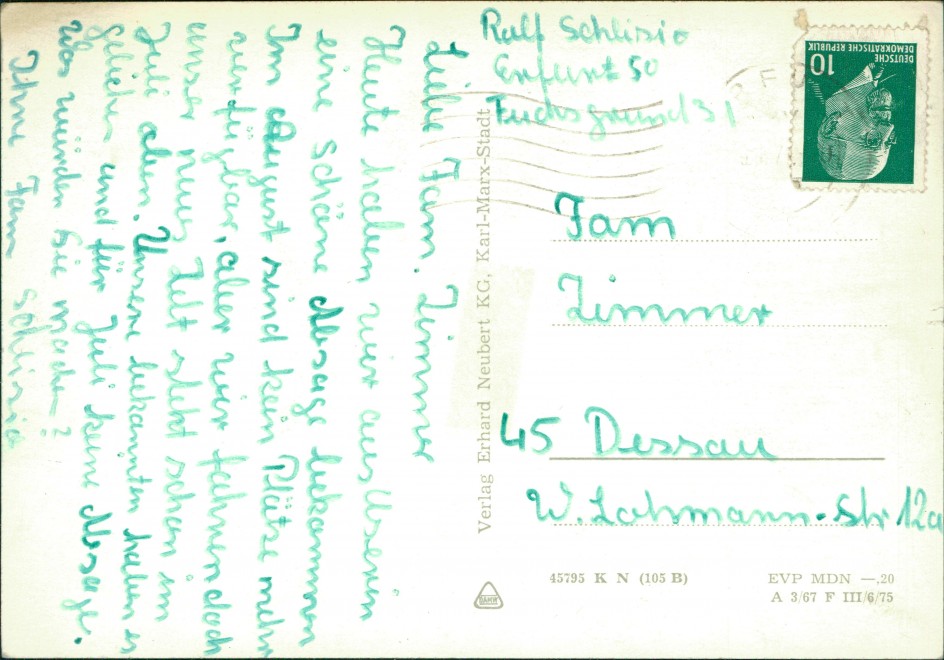 Ralf Schlisio
Erfurt 50
Fuchsgrund 31
Liebe Fam. Zimmer
Heute haben wir aus Userin
eine schöne Absage bekommen
Im August sind kein Plätze mehr
verfügbar, aber wir fahren doch
unser neues Zelt steht schon im
Juli oben. Unsere bekannten haben es
gleiche und für Juli keine Absage.
Was würden Sie mache?
Ihre Fam Schlisio
Verlag Erhard Neubert KG, Karl-Marx-Stadt
DEUTSCHE
DEMOKRATISCHE REPUBLIK
10
Fam
Zimmer
45 Dessau
W. Lohmann-Str 12a
45795 K N (105 B)
EVP MDN —,20
A 3/67 F III/6/75